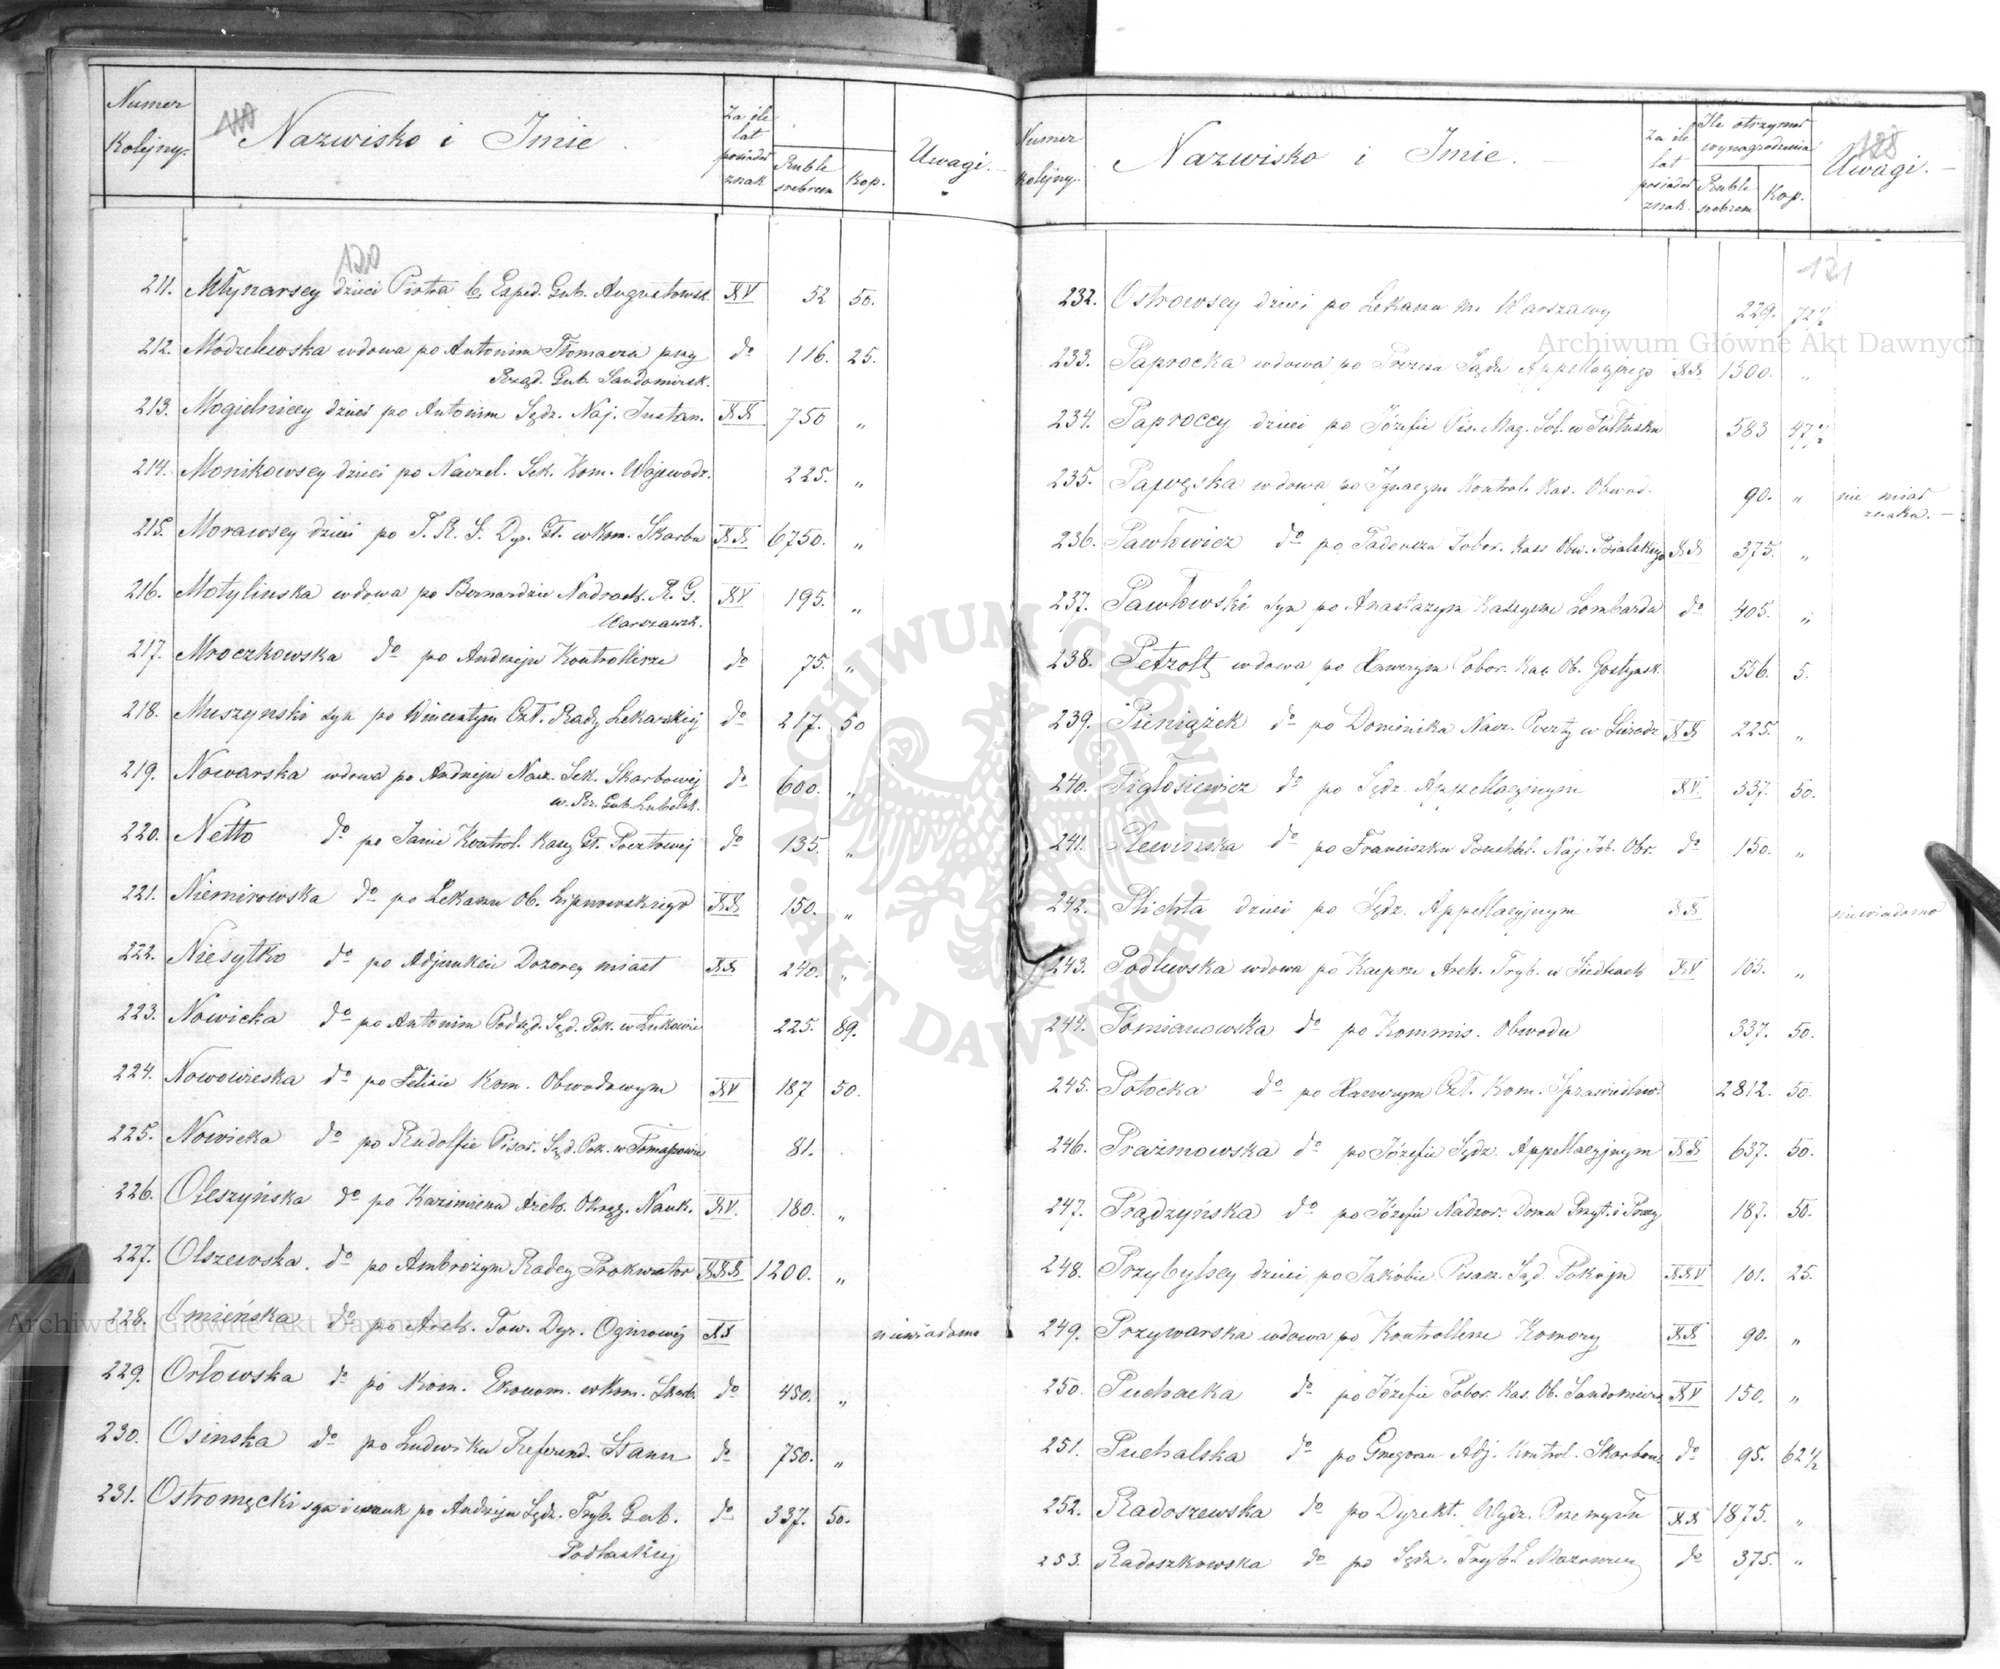 Numer Kolejny. Nazwisko i Imie. Za ile lat posiadał znak Ruble srebrem Kop. Uwagi.
120
211. Młynarscy dzieci Piotra b. Exped. Gub. Augustowsk. XV 52 50.
212. Modzelewska wdowa po Antonim Tłomacza przy do 116. 25.
Rząd. Gub. Sandomirsk.
213. Mogielniccy dzieci po Antonim Sędz. Naj. Instan. XX 750 „
214. Monikowscy dzieci po Naczel. Sek. Kom. Wojewodz. 225. „
215. Morawscy dzieci po T. R. S. Dyr. Gł. w Kom. Skarbu XX 6750. „
216. Motylinska wdowa po Bernardzie Nadrach. R. G. XV 195. „
Warszawsk.
217. Mroczkowska do po Andrzeju Kontrollerze do 75. „
218. Muszynski syn po Wincentym Czł. Rady Lekarskiej do 217. 50
219. Nowarska wdowa po Andrzeju Nacz. Sek. Skarbowej do 600. „
w Rz. Gub. Lubelsk.
220. Netto do po Janie Kontrol. Kassy Gł. Pocztowej do 135. „
221. Niemirowska do po Lekarzu Ob. Lipnowskiego XX 150. „
222. Niesytko do po Adjunkcie Dozorcy miast XX 240. „
223. Nowicka do po Antonim Podsęd. Sąd. Pok. w Łukowie 225. 89.
224. Nowowieska do po Felixie Kom. Obwodowym XV 187 50.
225. Nowicka do po Rudolfie Pisar. Sąd. Pok. w Tomaszowie 81.
226. Oleszyńska do po Kazimierzu Arch. Okręg. Nauk. XV. 180. „
227. Olszewska. do po Ambrożym Radcy Prokurator XXX 1200. „
228. Omieńska do po Arch. Tow. Dyr. Ogniowej XX niewiadomo
229. Orłowska do po Kom. Ekonom. w Kom. Skarb. do 450. „
230. Osinska do po Ludwiku Referend. Stanu do 750. „
231. Ostromęcki syn i wnuk po Andrzeju Sędz. Tryb. Gub. do 337. 50.
Podlaskiej
Numer Kolejny. Nazwisko i Imie. Za ile lat posiadał znak. Ile otrzymał wynagrodzenia Ruble srebrem Kop. Uwagi.
121
232. Ostrowscy dzieci po Lekarzu m. Warszawy 229. 72 1/2
233. Paprocka wdowa po Prezesa Sądu Appellacyjnego XX 1500. „
234. Paproccy dzieci po Józefie Pis. Mag. Sol. w Pułtusku 583 47 1/2
235. Pawęska wdowa po Ignacym Kontrol. Kas. Obwod. 90. „ nie miał
znaku.
236. Pawłowicz do po Tadeuszu Pobor. Kass Obw. Bialskiego XX 375. „
237. Pawłowski syn po Anastazym Kassyerze Lombardu do 405. „
238. Petzolt wdowa po Xawerym Pobor. Kas. Ob. Gostyńsk. 556. 5.
239. Pieniążek do po Dominiku Nacz. Poczty w Sieradz XX 225. „
240. Pigłosiewicz do po Sędz. Appellacyjnym XV. 337. 50.
241. Plewinska do po Franciszku Buchhal. Naj. Izb. Obr. do 150. „
242. Plichta dzieci po Sędz. Appellacyjnym XX niewiadomo
243. Podlewska wdowa po Kacprze Arch. Tryb. w Siedlcach XV 105. „
244. Pomianowska do po Kommis. Obwodu 337. 50.
245. Potocka do po Xawerym Czł. Kom. Sprawiedliw. 2812. 50.
246. Prażmowska do po Józefie Sędz. Appellacyjnym XX 637. 50.
247. Prądzyńska do po Józefie Nadzor. Domu Przyt. i Pracy 187. 50.
248. Przybylscy dzieci po Jakóbie Pisarz. Sąd. Pokoju XXV 101. 25.
249. Przywarska wdowa po Kontrollerze Komory XX 90. „
250. Puchacka do po Józefie Pobor. Kas. Ob. Sandomirs. XV 150. „
251. Puchalska do po Grzegorzu Adj. Kontrol. Skarbow. do 95. 62 1/2
252. Radoszewska do po Dyrekt. Wydz. Przemysłu XX 1875. „
253. Radoszkowska do po Sędz. Tryb. Mazowiec do 375. „
Archiwum Główne Akt Dawnych
Archiwum Główne Akt Dawnych
ARCHIWUM GŁÓWNE · AKT DAWNYCH ·